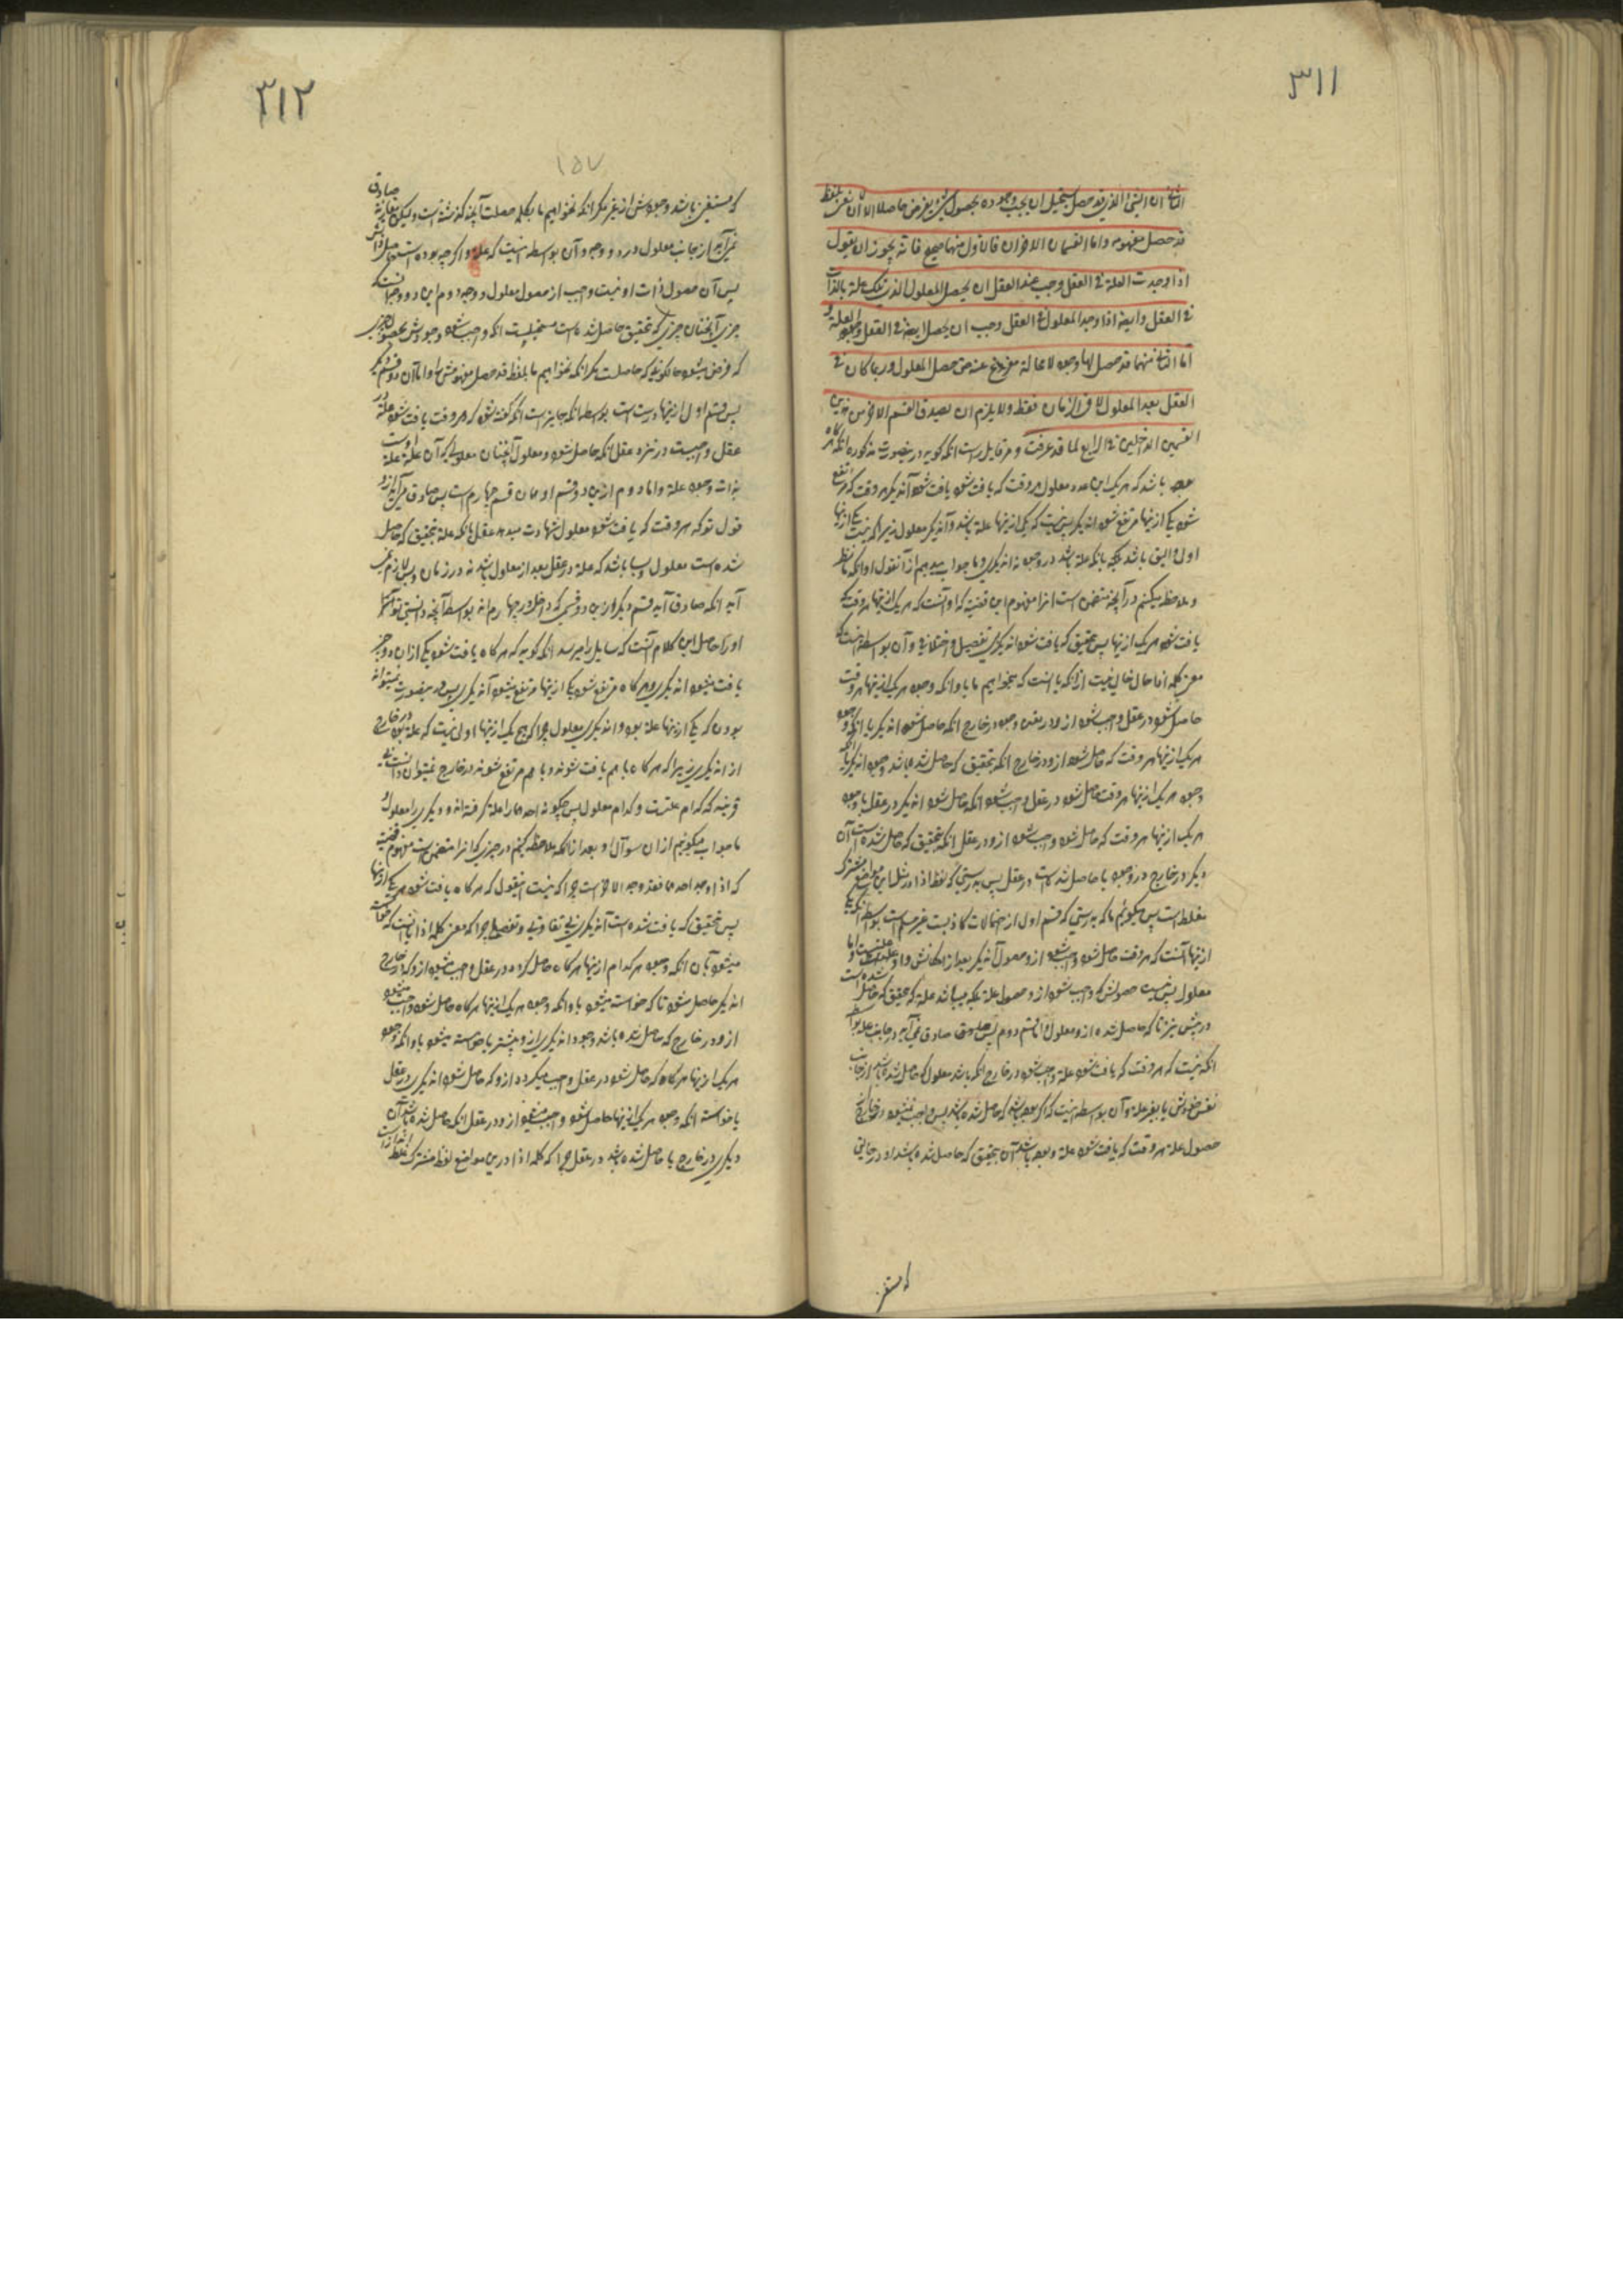 ۳۱۱
الثانی ان الشیء الذی قد حصل یستحیل ان یجب وجوده بحصول شیء یفرض حاصلا الا ان نعنی بلفظ
قد حصل مفهومه واما القسمان الاخران فالاول منهما صحیح فانه یجوز ان یقول
اذا وجدت العلة فی العقل وجب عند العقل ان یحصل المعلول الذی تلک علته بالذات
فی العقل وایضا اذا وجد المعلول فی العقل وجب ان یحصل ایضا فی العقل وجود العلة و
اما الثانی منهما قد حصل لها وجود لا محالة مفروغ عنه حتی حصل المعلول وربما کان فی
العقل بعد المعلول لا فی الزمان فقط ولا یلزم ان یصدق القسم الاخر من هذین
القسمین الداخلین فی الرابع لما قد عرفت و مر قایل راست انکه گوید درینصورت مذکوره انکه هرگاه
بوده باشد که هر یک این علة و معلول هر وقت که یافت شود یافت شود آندیگر هر وقت که مرتفع
شود یکی ازینها مرتفع شود اندیگر پس نیست که یکی ازینها علة باشد و آندیگر معلول زیرا که نیست یکی ازینها
اولی و الیق باشد بآنکه علة باشد در وجود نه اندیگری و ما جواب میدهیم از آنقول او انکه ما نظر
و ملاحظه میکنیم در آنچه متضمن است انرا مفهوم این قضیه که او آنست که هر یک ازینها هر وقت که
یافت شود هر یک ازینها پس بتحقیق که یافت شود اندیگری تفصیل و اختلافی و آن بواسطه اینست که
معنی کلمه اذا حال خالی نیست ازانکه یا انست که بخواهیم ما باو انکه وجود هر یک ازینها هر وقت
حاصل شود در عقل واجب شود ازو در نفس وجود در خارج انکه حاصل شود اندیگر یا انکه وجود
هر یک ازینها هر وقت که حاصل شود ازو در خارج انکه بتحقیق که حاصل شده باشد وجود اندیگر یا انکه
وجود هر یک ازینها هر وقت حاصل شود در عقل واجب شود انکه حاصل شود اندیگر در عقل یا وجود
هر یک ازینها هر وقت که حاصل شود واجب شود ازو در عقل انکه بتحقیق که حاصل شده است آن
دیگر در خارج در وجود یا حاصل شده است در عقل پس بدرستی که لفظ اذا در مثل این مواضع مشترک
مغلط است پس میگوئیم ما که بدرستی که قسم اول از احتمالات کاذبست غیر مسلم است بواسطه انکه یکی
ازینها آنست که هر وقت حاصل شود واجب شود ازو حصول آندیگر بعد از امکانش و او علتست اما
معلول پس نیست حصولش که واجب شود ازو حصول علة بلکه میباشد علة که بتحقیق که حاصل شده است
در پیش نیز تا که حاصل شده ازو معلول و اما قسم دوم پس صادق نمی‌آید در جانب علة بواسطه
انکه نیست که هر وقت که یافت شود علة واجب شود در خارج انکه باشد معلول که حاصل شده باشد از جانب
نفس خودش یا بغیر علة و آن بواسطه اینست که اگر بوده باشد که حاصل شده باشد پس واجب نمیشود در خارج از
حصول علة هر وقت که یافت شود علة و بوده باشد آن بتحقیق که حاصل شده باشد او در جائی
که مستغنی
۳۱۲
۱۵۷
که مستغنی باشد وجودش از غیر مگر انکه نخواهیم ما بکلمه حصلت آنچه گذشته است ولیکن صادق
نمی‌آید از جانب معلول در دو وجه و آن بواسطه اینست که علة و اگر چه بوده است حاصل
پس آن حصول ذات او نیست واجب از حصول معلول و وجه دوم این دو وجه آنست که
چیزی آنچنان چیزی که بتحقیق حاصل شده است مستحیلست انکه واجب شود وجودش بحصول چیزی
که فرض میشود حالکونی که حاصلست مگر انکه نخواهیم ما بلفظ قد حصل مفهومش را و اما آن دو قسم دیگر
پس قسم اول ازینها درست است بواسطه انکه جایز است انکه گفته شود که هر وقت یافت شود علة در
عقل واجبست در نزد عقل انکه حاصل شود معلول آنچنان معلولی که آن علة علة
بذات وجود علة و اما دوم ازین دو قسم او همان قسم چهارم است پس صادق می‌آید ازو
قول تو که هر وقت که یافت شود معلول شهادت میدهد عقل بانکه علة بتحقیق که حاصل
شده است معلول و بسا باشد که علة در عقل بعد از معلول باشد نه در زمان و پس لازم نمی
آید انکه صادق آید قسم دیگر ازین دو قسمی که داخلند در چهارم انه بواسطه آنچه دانستی تو
او را حاصل این کلام آنست که سایل را میرسد انکه گوید که هر گاه یافت شود یکی ازان دو چیز
یافت میشود اندیگری و هر گاه مرتفع شود یکی ازینها مرتفع میشود آندیگری پس درینصورت نمیتواند
بودن که یکی ازینها علة بود و اندیگری معلول چرا که هیچ یک ازینها اولی نیست که علة بوده در خارج
از اندیگری زیرا که هر گاه با هم یافت شوند و با هم مرتفع شوند در خارج نمیتوان دانست بی
قرینه که کدام علتست و کدام معلول پس چگونه احدهما را علة گرفته‌اند و دیگری را معلول و
ما جواب میگوئیم ازان سوال او بعد ازانکه ملاحظه کنیم در چیزی که انرا متضمن است مفهوم قضیه
که اذا وجد احدهما فقد وجد الاخر است چرا که نیست اینقول که هر گاه یافت شود هر یکی ازینها
پس بتحقیق که یافت شده است آندیگری بی تفاوتی و تفصیلی چرا که معنی کلمه اذا یا اینست که خواسته
میشود بآن انکه وجود هر کدام ازینها هر گاه حاصل گردد در عقل واجب میشود ازو که در خارج
اندیگر حاصل شود تا که خواسته میشود باو انکه وجود هر یک ازینها هر گاه حاصل شود واجب میشود
ازو در خارج که حاصل شده باشد وجود اندیگری ازو پیشتر یا خواسته میشود باو انکه وجود
هر یک ازینها هر گاه که حاصل شود در عقل واجب میگردد ازو که حاصل شود اندیگری در عقل
یا خواسته انکه وجود هر یک ازینها حاصل شود واجب میشود ازو در عقل انکه حاصل شده باشد آن
دیگری در خارج یا حاصل شده باشد در عقل چرا که کلمه اذا درین مواضع لفظ مشترک مغلط